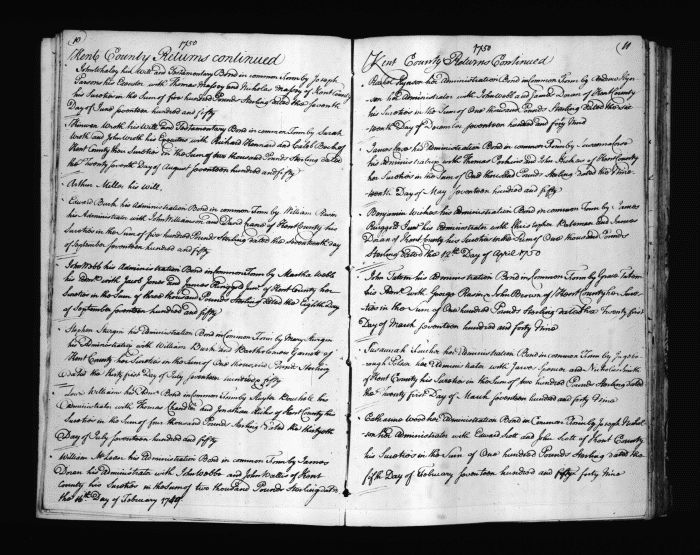 10
1750
Kent County Returns continued
John Whaley his Will and Testamentary Bond in common Form by Joseph
Parsons his Executor with Thomas Massey and Nicholas Massey of Kent County
his Sureties in the Sum of five hundred Pounds Sterling dated the Seventh
Day of June Seventeen hundred and fifty
Wroth his Will and Testamentary Bond in common Form by Sarah
Wroth and John Wroth his Executors with Richard Kennard and Caleb Beck of
Kent County their Sureties in the Sum of two thousand Pounds Sterling dated
the Twenty Seventh Day of August Seventeen hundred and fifty
Arthur Miller his Will
Edward Beck his Administration Bond in common Form by William
his Administrator with John Williamson and David of Kent County his
Sureties in the Sum of five hundred Pounds Sterling dated the Seventeenth day
of September Seventeen hundred and fifty
John Webb his Administration Bond in common Form by Martha Webb
his with Jones and James of Kent County her
Sureties in the Sum of three thousand Pounds Sterling dated the Eighth day
of September Seventeen hundred and fifty
Stephen his Administration Bond in common Form by Mary
his Administratrix with William Bush and Bartholomew Garnett of
Kent County her Sureties in the Sum of One thousand Pounds Sterling
dated the thirty first Day of July Seventeen hundred & fifty
William his Bond in common Form by
Administrator with Thomas and Jonathan of Kent County his
Sureties in the Sum of four thousand Pounds Sterling dated the
Day of July Seventeen hundred and fifty
William McLean his Administration Bond in common Form by James
his Administrator with John Webb and John Waller of Kent
County his Sureties in the Sum of two thousand Pounds Sterling dated
the 16th Day of February 1749
11
1750
Kent County Returns Continued
Rachel her Administration Bond in Common Form by Andrew
her Administrator with John Webb and James of Kent County
his Sureties in the Sum of One hundred Pounds Sterling dated the
Day of December Seventeen hundred and forty Nine
James his Administration Bond in Common Form by Susannah
his Administratrix with Thomas Perkins and John of Kent County
her Sureties in the Sum of One thousand Pounds Sterling dated the Nine
teenth Day of May Seventeen hundred and fifty
Benjamin his Administration Bond in common Form by James
his Administrator with Christopher Bateman and James
of Kent County his Sureties in the Sum of One thousand Pounds
Sterling dated the 12th Day of April 1750
John Tatem his Administration Bond in Common Form by Grace Tatem
his with George and John Brown of Kent County her Sure
ties in the Sum of One hundred Pounds Sterling dated the Twenty first
Day of March Seventeen hundred and forty Nine
Susannah her Administration Bond in common Form by
her Administrator with and Nicholas Smith
of Kent County his Sureties in the Sum of two hundred Pounds Sterling dated
the Twenty first Day of March Seventeen hundred and forty Nine
Catharine Wood her Administration Bond in Common Form by Joseph Nichol
son her Administrator with Edward Scott and John Scott of Kent County
his Sureties in the Sum of One hundred Pounds Sterling dated the
fifth Day of February Seventeen hundred and forty Nine